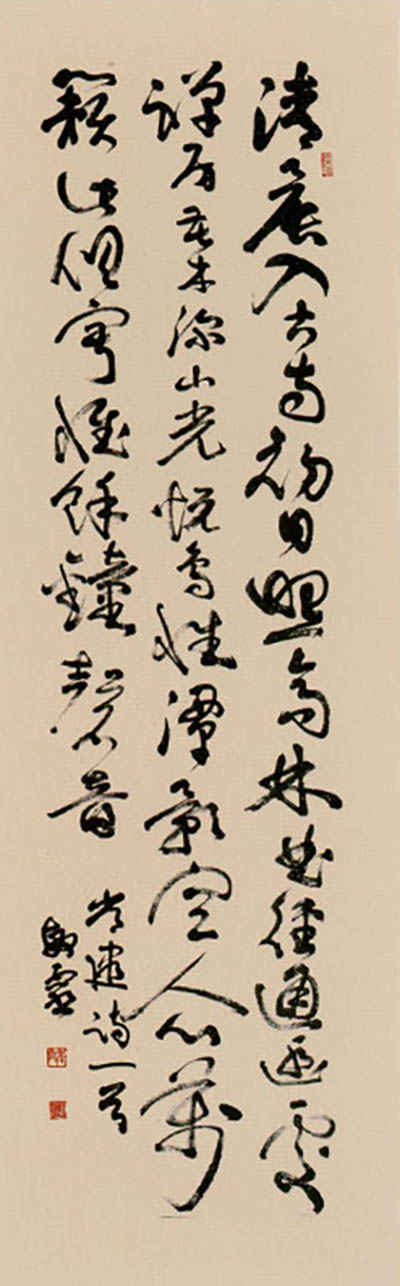 清晨入古寺初日照高林曲徑通幽處
禪房花木深山光悅鳥性潭影空人心萬
籟此俱寂惟餘鐘磬音
常建詩一首